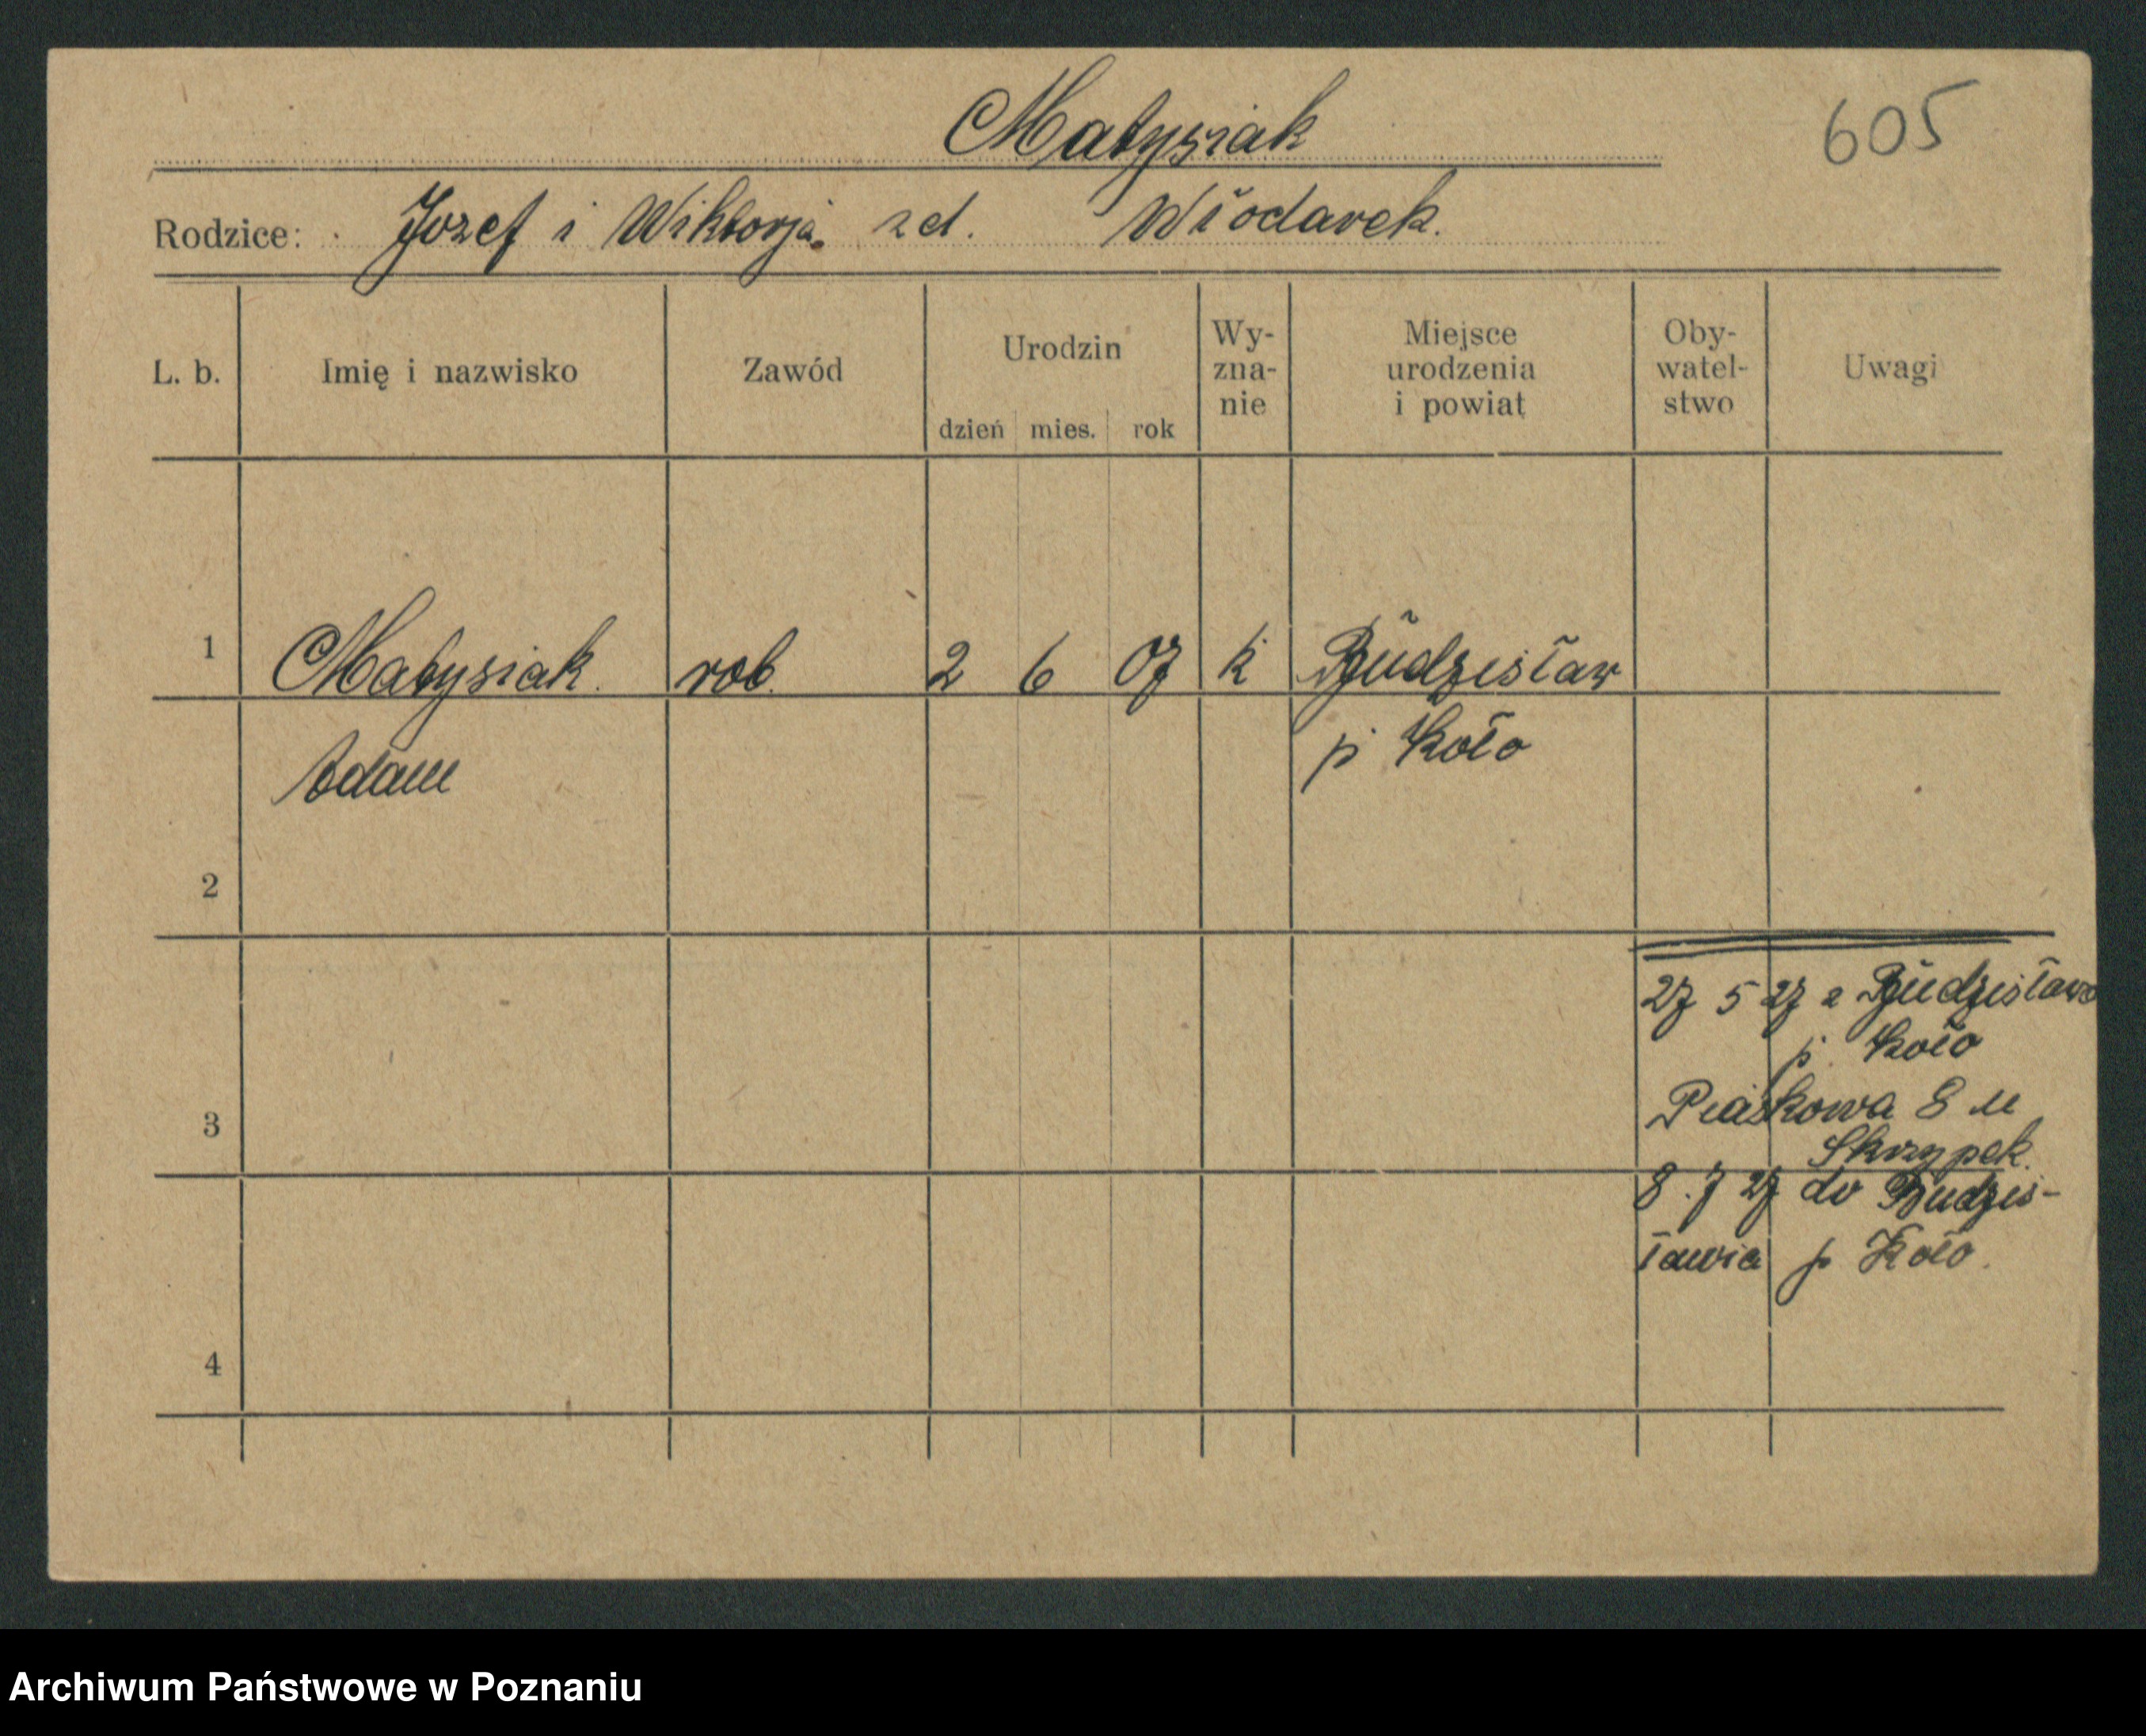 Matysiak
605
Rodzice: Jozef i Wiktorja zd. Włodarek.
L. b. Imię i nazwisko Zawód Urodzin dzień mies. rok Wy-zna-nie Miejsce urodzenia i powiat Oby-watel-stwo Uwagi
1 Matysiak rob. 2 6 07 k Budzisław
Adam p Koło
2
27 5 27 z Budzisława
p. Koło
3 Piaskowa 8 u
Skrzypek.
8.7 27 do Budzis-
ławia p Koło.
4
Archiwum Państwowe w Poznaniu